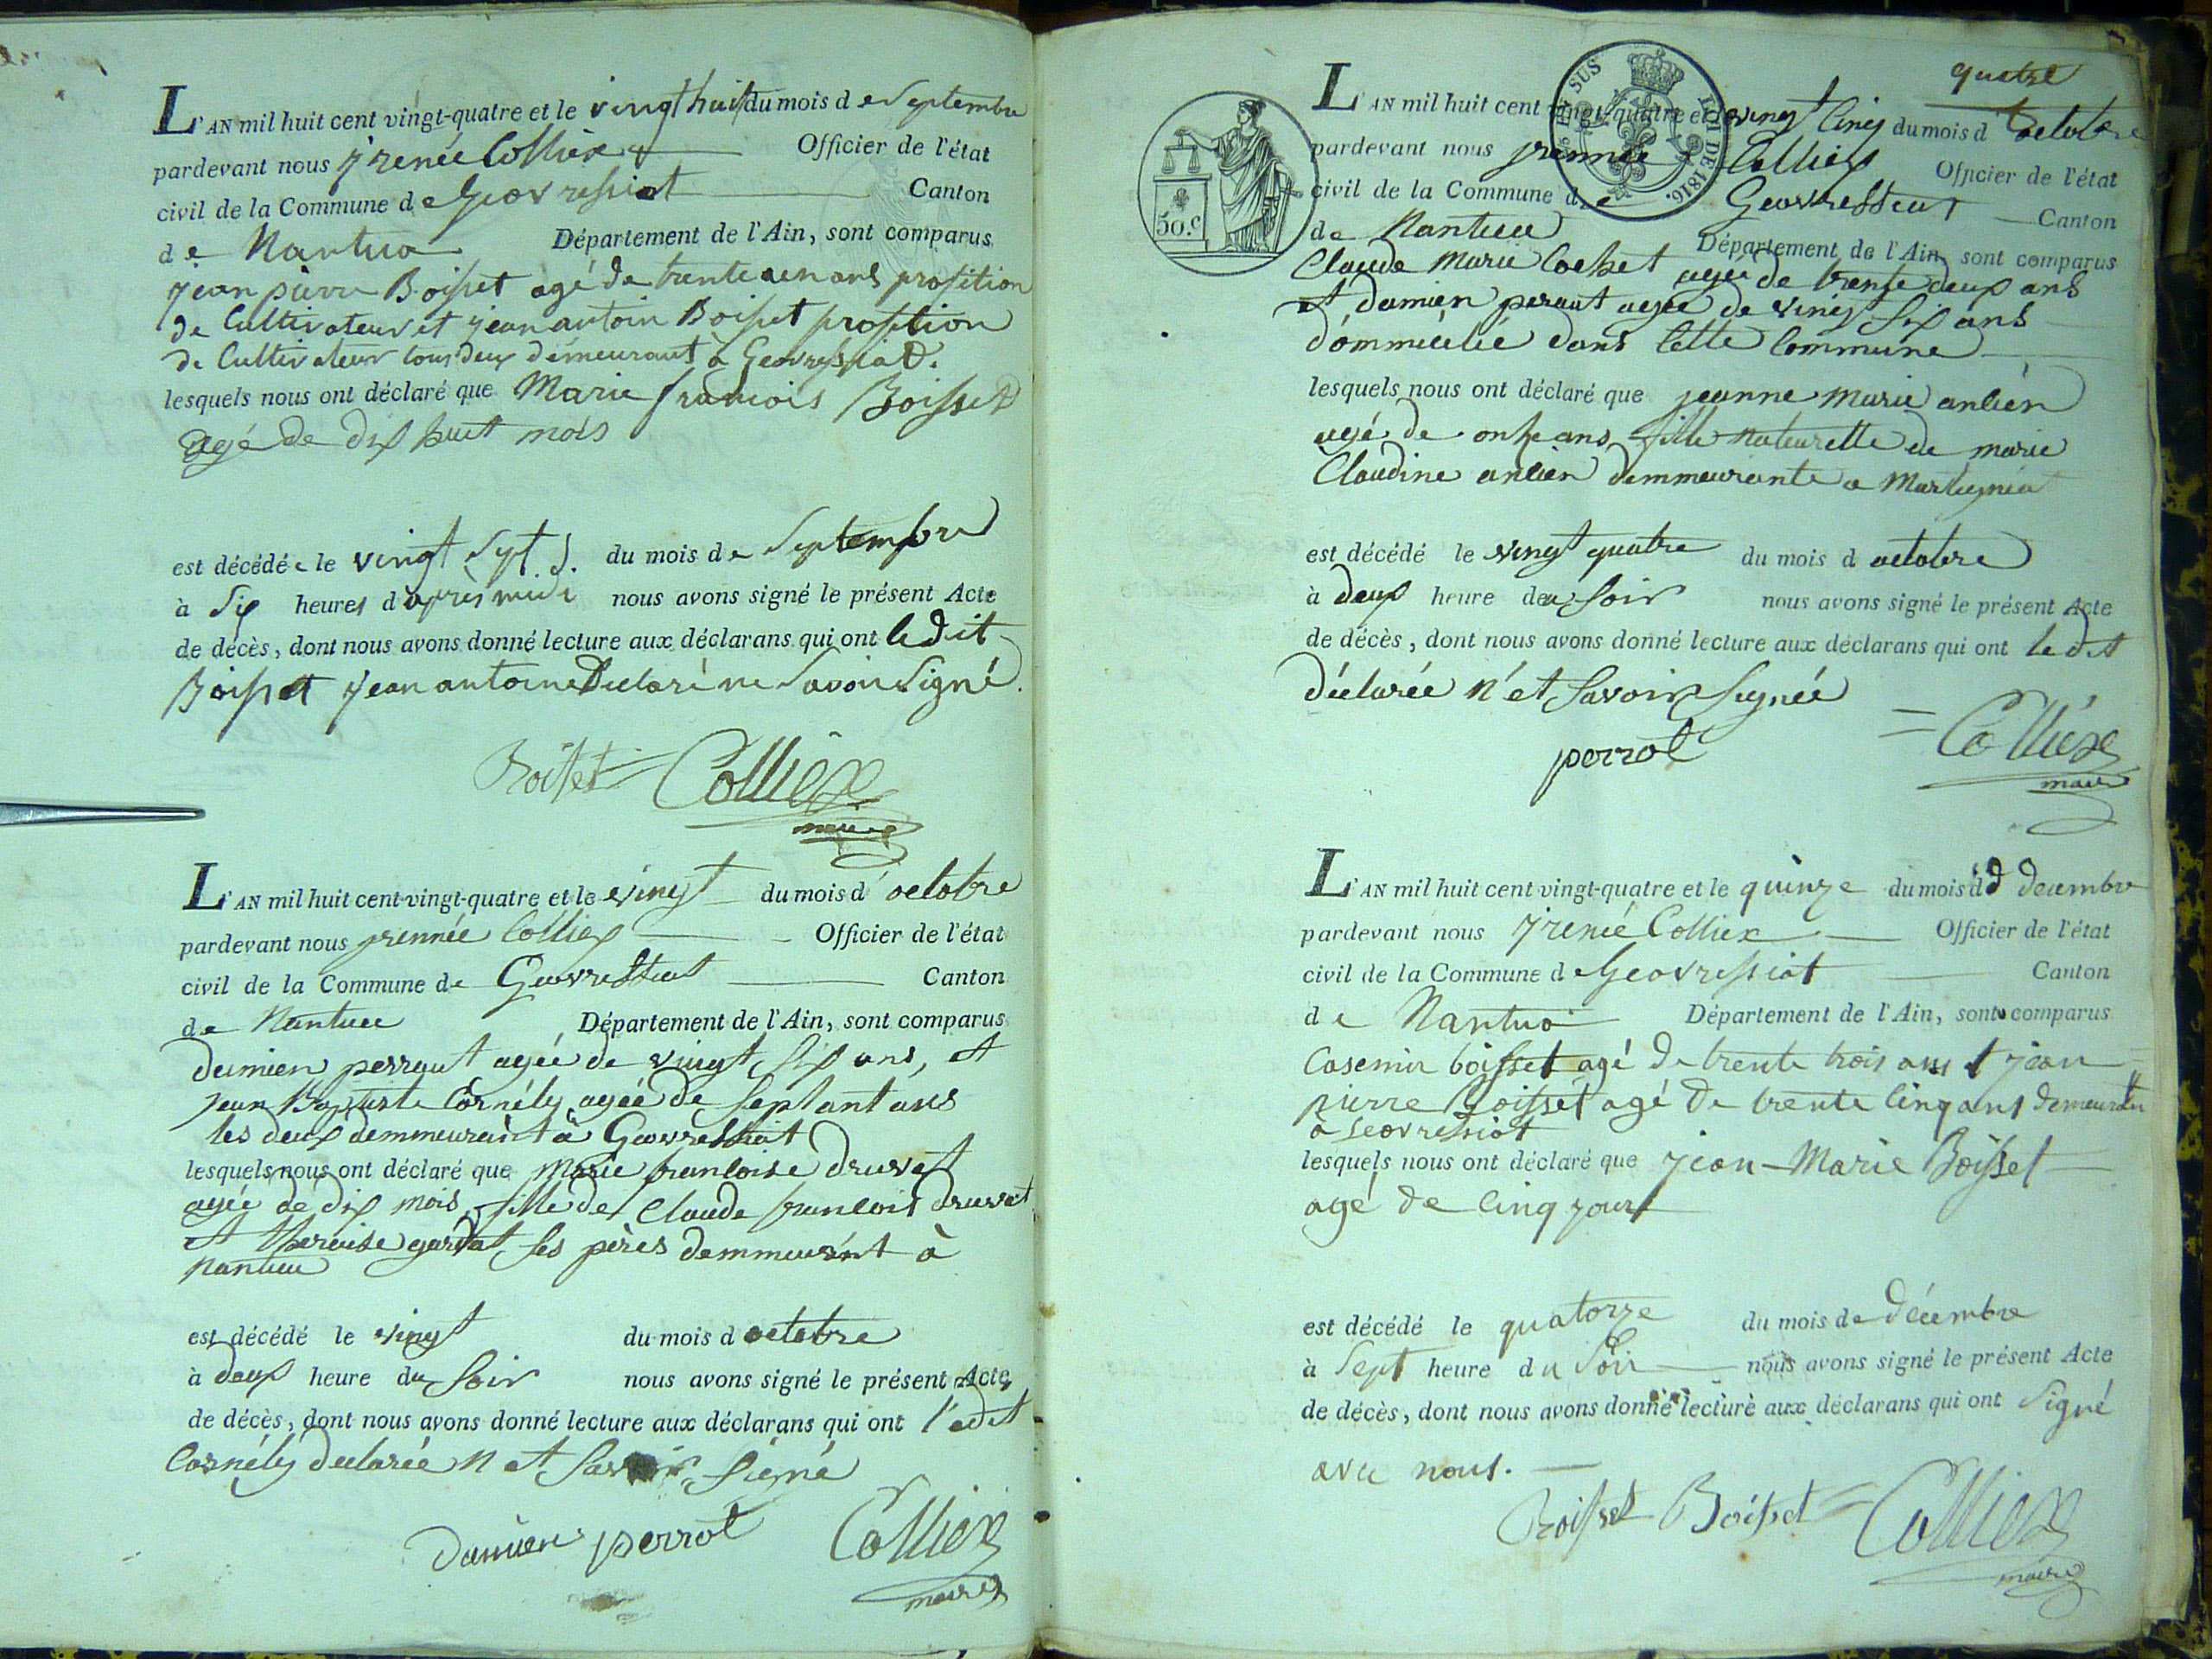 L'AN mil huit cent vingt-quatre et le vingt huit du mois de Septembre
pardevant nous jrenée Colliex Officier de l'état
civil de la Commune de Geovressiat Canton
de Nantua Département de l'Ain, sont comparus
jean pierre Boisset agé de trente ans profition
de Cultivateur et jean antoin Boisset profition
de Cultivateur tous deux démeurant a Geovressiat.
lesquels nous ont déclaré que Marie francois Boisset
agé de dix huit mois
est décédé le vingt Sept du mois de Septembre
à Six heures d'après midi nous avons signé le présent Acte
de décès, dont nous avons donné lecture aux déclarans qui ont ledit
Boisset jean antoine Déclaré ne Savoir Signé.
Boisset Colliex
maire
L'AN mil huit cent vingt-quatre et le vingt du mois d'octobre
pardevant nous jrennée Colliex Officier de l'état
civil de la Commune de Geovressiat Canton
de Nantua Département de l'Ain, sont comparus
damien perraut agée de vingt Six ans, et
jean Baptiste Cornély agée de Septant ans
les deux demmeurant à Geovressiat
lesquels nous ont déclaré que Marie francoise druvat
agée de dix mois fille de Claude francois druvat
et theraise gardat ses pères demmeurent à
nantua
est décédé le vingt du mois d octobre
à deux heure du Soir nous avons signé le présent Acte
de décès, dont nous avons donné lecture aux déclarans qui ont l'edit
Cornély declarée n et Savoir Signé
Damien perrot Colliex
maire
quatre
50.c
SUS LOI DE 1816.
L'AN mil huit cent vingt-quatre et le vingt cinq du mois d octobre
pardevant nous jrennée Colliex Officier de l'état
civil de la Commune de Geovressiat Canton
de Nantua Département de l'Ain, sont comparus
Claude Marie Cochet agée de trente deux ans
et damien peraut agée de vingt Six ans
dómmiciliée dans cette Commune
lesquels nous ont déclaré que jeanne marie ancien
agé de onze ans fille naturelle de marie
Claudine ancien demmeurante a Martigniat
est décédé le vingt quatre du mois d octobre
à deux heure du Soir nous avons signé le présent Acte
de décès, dont nous avons donné lecture aux déclarans qui ont ledit
déclarée n'et Savoir Signée
perrot Colliex
maire
L'AN mil huit cent vingt-quatre et le quinze du mois d decembre
pardevant nous jrenée Colliex Officier de l'état
civil de la Commune de Geovressiat Canton
de Nantua Département de l'Ain, sont comparus
Casemir boisset agé de trente trois ans et jean
pierre Boisset agé de trente cinq ans demeurant
a Geovressiat
lesquels nous ont déclaré que jean-Marie Boisset
agé de cinq jour
est décédé le quatorze du mois de décembre
à Sept heure du Soir nous avons signé le présent Acte
de décès, dont nous avons donné lecture aux déclarans qui ont Signé
avec nous.
Boisset Boisset Colliex
maire